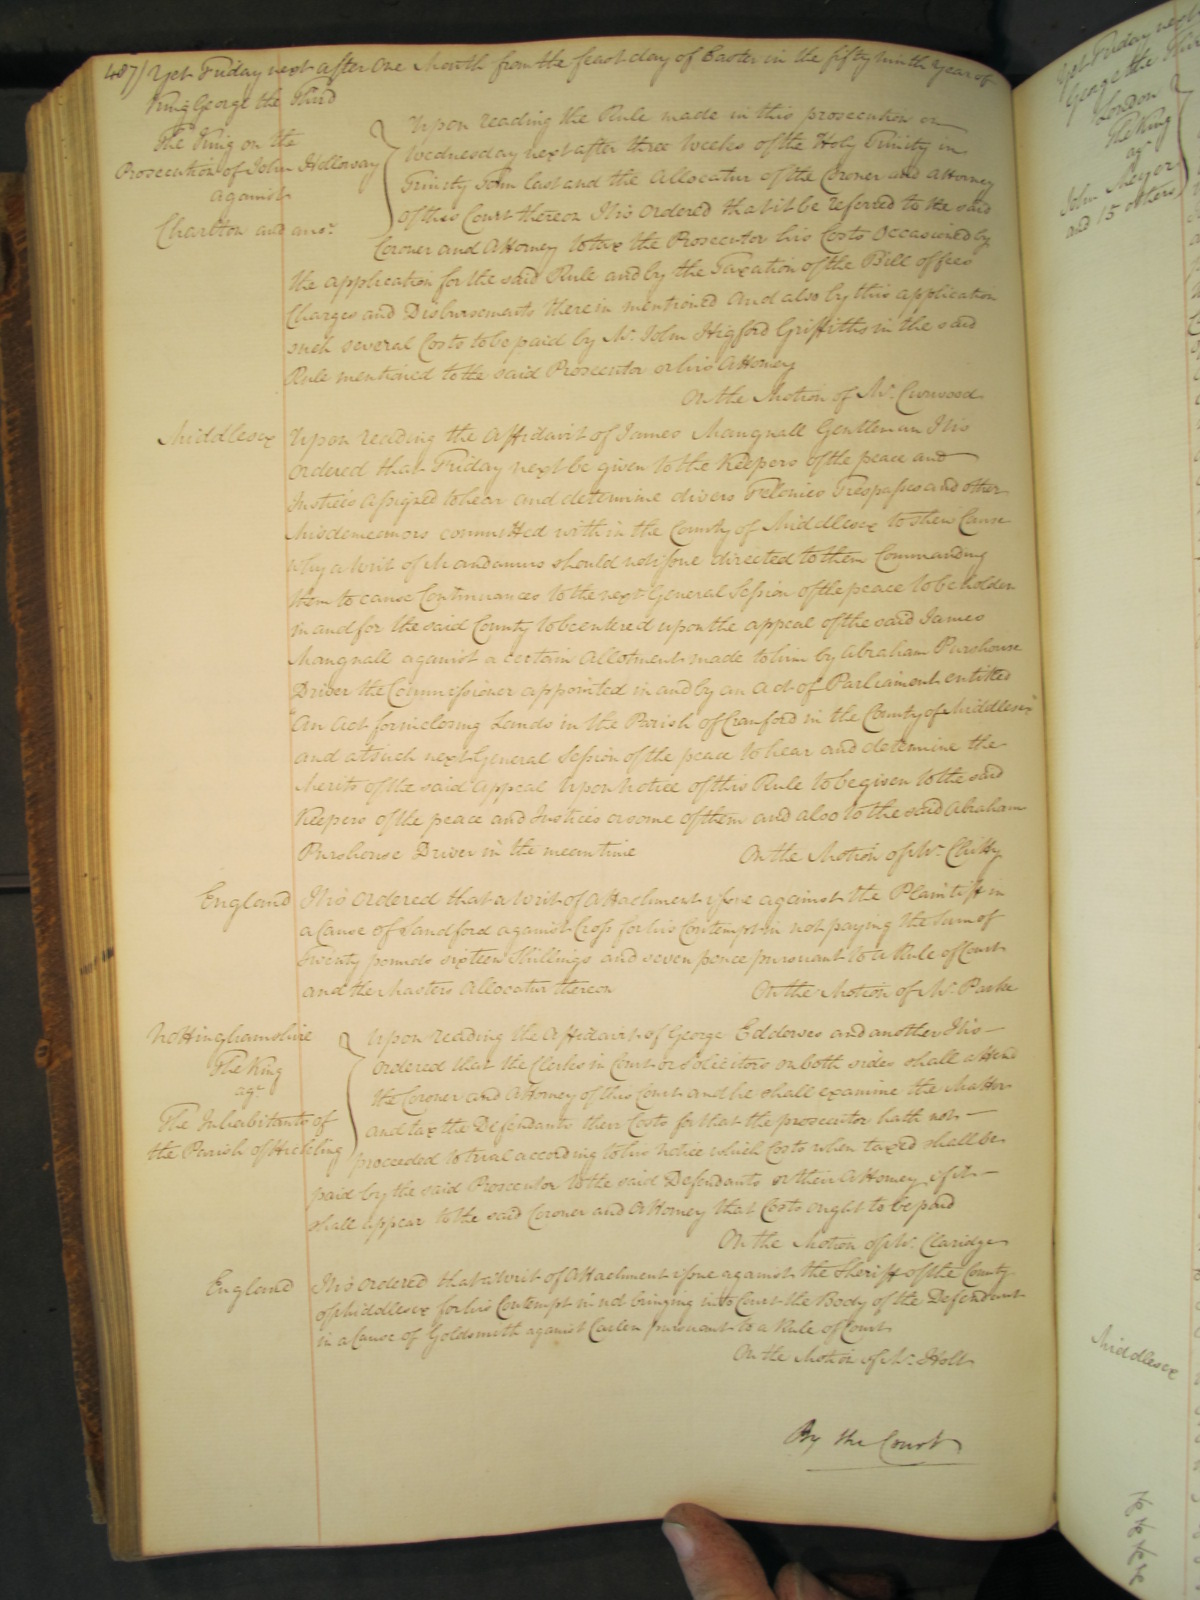 487/ Yet Friday next after One Month from the feast day of Easter in the fifty ninth Year of
King George the Third
The King on the
Prosecution of John Holloway
against
Charlton and anor.
Upon reading the Rule made in this prosecution on
Wednesday next after three Weeks of the Holy Trinity in
Trinity Term last and the Allocatur of the Coroner and Attorney
of this Court thereon It is Ordered that it be referred to the said
Coroner and Attorney to tax the Prosecutor his Costs Occasioned by
the application for the said Rule and by the Taxation of the Bill of fees
Charges and Disbursements therein mentioned And also by this application
such several Costs to be paid by Mr. John Higford Griffiths in the said
Rule mentioned to the said Prosecutor or his Attorney
On the Motion of Mr. Curwood
Middlesex
Upon reading the Affidavit of James Mangnall Gentleman It is
Ordered that Friday next be given to the Keepers of the peace and
Justices assigned to hear and determine divers Felonies Trespasses and other
Misdemeanors committed within the County of Middlesex to shew Cause
Why a Writ of Mandamus should not issue directed to them Commanding
them to cause Continuances to the next General Session of the peace to be holden
in and for the said County to be entered upon the appeal of the said James
Mangnall against a certain Allotment made to him by Abraham Purshouse
Driver the Commissioner appointed in and by an Act of Parliament entitled
"An Act for inclosing Lands in the Parish of Cranford in the County of Middlesex"
and at such next General Session of the peace to hear and determine the
Merits of the said Appeal Upon Notice of this Rule to be given to the said
Keepers of the peace and Justices or some of them and also to the said Abraham
Purshouse Driver in the mean time On the Motion of Mr. Chitty
England
It is Ordered that a Writ of Attachment issue against the Plaintiff in
a Cause of Sandford against Cross for his Contempt in not paying the Sum of
twenty pounds sixteen Shillings and seven pence pursuant to a Rule of Court
and the Masters Allocatur thereon On the Motion of Mr. Parke
Nottinghamshire
The King
agt.
The Inhabitants of
the Parish of Hickling
Upon reading the Affidavit of George Edderwes and another It is
Ordered that the Clerks in Court or Solicitors on both sides shall attend
the Coroner and Attorney of this Court and he shall examine the Matter
and tax the Defendants their Costs for that the prosecutor hath not
proceeded to trial according to his Notice which Costs when taxed shall be
paid by the said Prosecutor to the said Defendants or their Attorney if it
shall appear to the said Coroner and Attorney that Costs ought to be paid
On the Motion of Mr. Claridge
England
It is Ordered that a Writ of Attachment issue against the Sheriff of the County
of Middlesex for his Contempt in not bringing into Court the Body of the Defendant
in a Cause of Goldsmith against Carlen pursuant to a Rule of Court
On the Motion of Mr. Holt
By the Court
Yet Friday next
George the Thi
London
The King
agt.
John Meyor
and 15 others
Middlesex